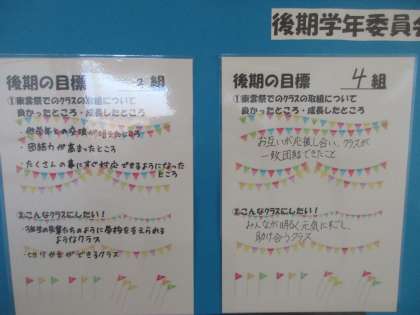 後期学年委員会
後期の目標 2組
①東雲祭でのクラスの取組について
良かったところ・成長したところ
・他学年との交流が
・団結力が高まったところ
・たくさんの事にすぐ対応できるようになった
ところ
②こんなクラスにしたい！
・3年生の先輩たちのように学校を支えられる
ようなクラス
ができるクラス
後期の目標 4組
①東雲祭でのクラスの取組について
良かったところ・成長したところ
お互いが応援し合い、クラスが
一致団結できたこと
②こんなクラスにしたい！
みんなが明るく元気にすごし、
助け合うクラス